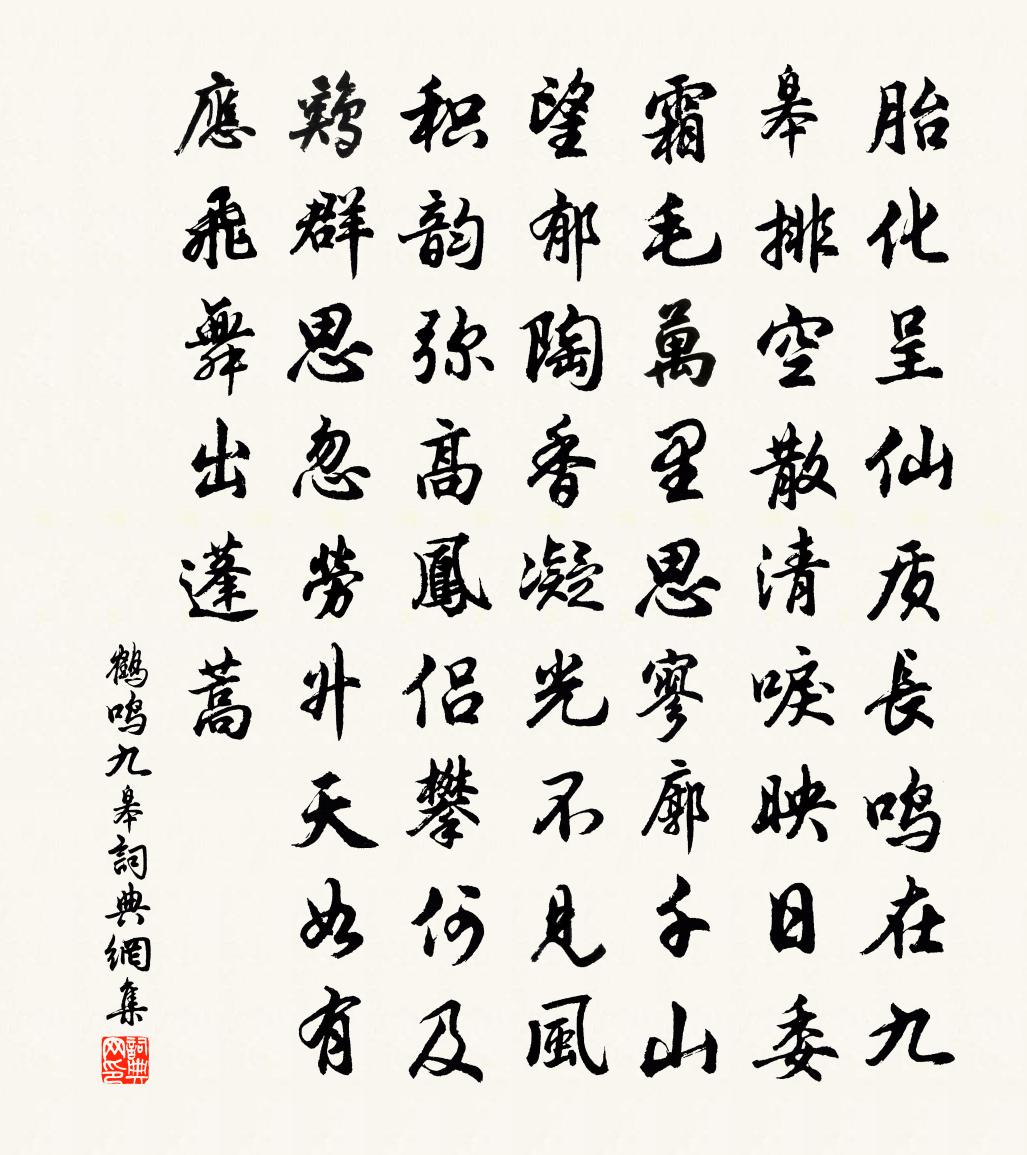 胎化呈仙质長鸣在九
皋排空散清唳映日委
霜毛萬里思寥廓千山
望郁陶香凝光不見風
积韵弥高鳳侣攀何及
鶏群思忽勞升天如有
應飛舞出蓬蒿
鶴鸣九皋詞典網集
詞典网印